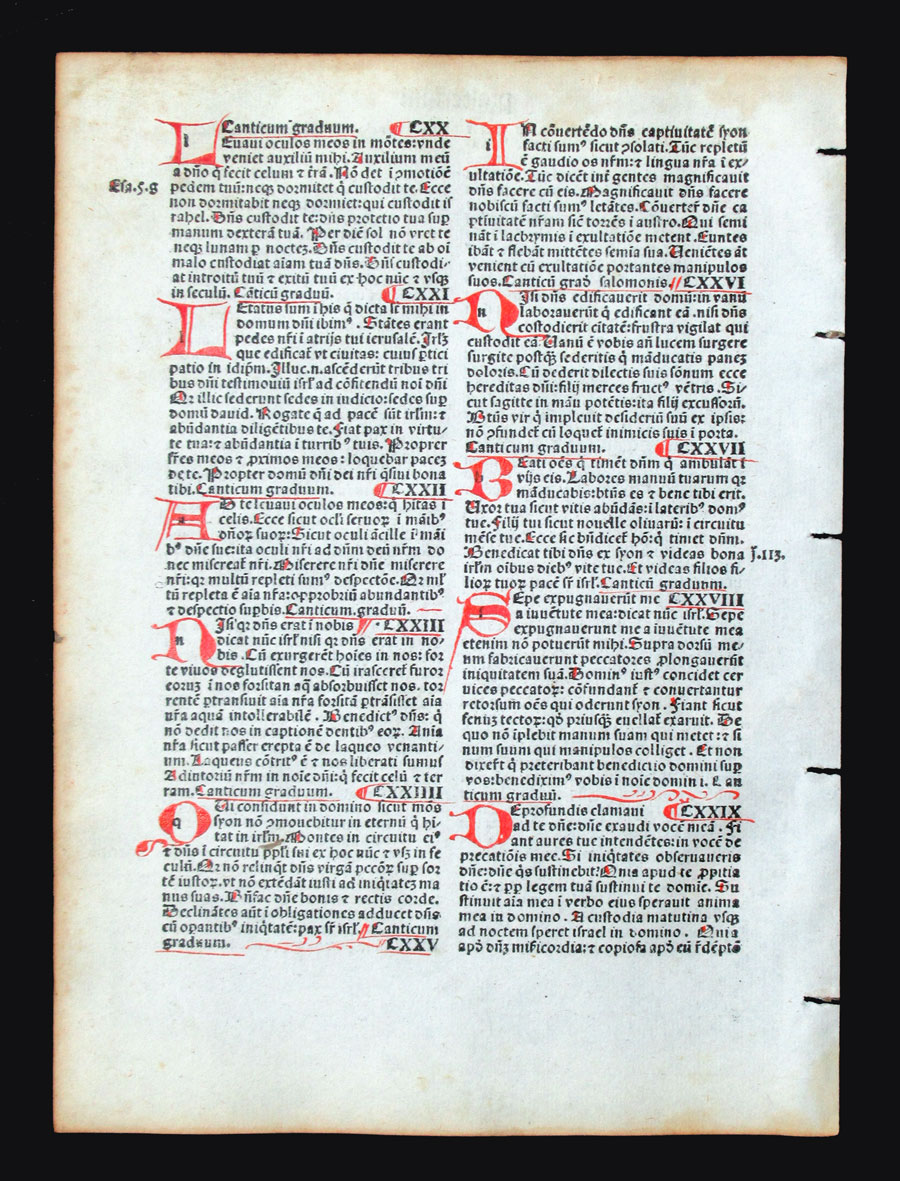 Canticum graduum. CXX
Leuaui oculos meos in mōtes: vnde
veniet auxiliū mihi. Auxilium meū
a dño q̄ fecit celum ⁊ trā. Nō det ī ꝯmotionē
Esa.5.g
pedem tuū: neqꝫ dormitet q̄ custodit te. Ecce
non dormitabit neqꝫ dormiet: qui custodit is
rahel. Dn̄s custodit te: dn̄s protetio tua sup
manum dexterā tuā. Per diē sol nō vret te
neqꝫ lunam ꝑ noctez. Dn̄s custodit te ab oī
malo custodiat aīam tuā dn̄s. Dn̄s custodi-
at introitū tuū ⁊ exitū tuū ex hoc nūc ⁊ vsqꝫ
in seculū. Cāticū graduū. CXXI
Letatus sum ī his q̄ dicta st̄ mihi in
domum dn̄i ibimꝰ. Stātes erant
pedes nr̄i ī atrijs tui ierusalē. Irlꝫ
que edificaꞇ̄ vt ciuitas: cuiꝰ ꝑtici
patio in idip̄m. Illuc.n. ascēderūt tribus tri
bus dn̄i testimoniū isrl̄ ad cōfitendū noī dn̄i
Qr illic sederunt sedes in iudicio: sedes sup
domū dauid. Rogate q̄ ad pacē sūt irlm̄: ⁊
abūdantia diligētibus te. Fiat pax in virtu-
te tua: ⁊ abūdantia ī turribꝰ tuis. Proprer
fr̄es meos ⁊ ꝓximos meos: loquebar pacez
de te. Propter domū dn̄i dei nr̄i q̄siui bona
tibi. Canticum graduum. CXXII
Ad te leuaui oculos meos: q̄ hītas ī
celis. Ecce sicut ocl̄i seruoꝝ ī māibꝰ
dn̄oꝝ suoꝝ: Sicut oculi ācille ī māi
bꝰ dn̄e sue: ita oculi nr̄i ad dn̄m deū nr̄m do
nec misereaꞇ̄ nr̄i. Miserere nr̄i dn̄e miserere
nr̄i: qꝛ multū repleti sumꝰ despectōe. Qꝛ ml̄
tū repleta ē aīa nr̄a: opprobriū abundantibꝰ
⁊ despectio suꝑbis. Canticum. graduū.
Nisi qꝛ dn̄s erat ī nobis CXXIII
dicat nūc isrl̄ nisi qꝛ dn̄s erat in no-
bis. Cū exurgerēt hoīes in nos: for
te viuos deglutissent nos. Cū irasceretꝛ furor
eoruꝫ ī nos forsitan aq̄ absorbuisset nos. tor
rentē ꝑtransiuit aīa nr̄a forsitā ꝑtrāsisset aīa
nr̄a aquā intollerabilē. Benedictꝰ dn̄s: q̄
nō dedit nos in captionē dentibꝰ eoꝝ. Anīa
nr̄a sicut passer erepta ē de laqueo venanti-
um. Laqueus cōtritꝰ ē ⁊ nos liberati sumus
Adiutoriū nr̄m in noīe dn̄i: q̄ fecit celū ⁊ ter
ram. Canticum graduum. CXXIIII
Qui confidunt in domino sicut mōs
syon nō ꝯmouebitur in eternū q̄ hi-
tat in irlm̄. Montes in circuitu eiꝰ
⁊ dn̄s ī circuitu ppl̄i sui ex hoc nūc ⁊ vsꝫ in se
culū. Qꝛ nō relinq̄t dn̄s virgā pccōꝝ sup sor
tē iustoꝝ. vt nō extēdāt iusti ad iniq̄tatez ma
nus suas. Bn̄fac dn̄e bonis ⁊ rectis corde.
Declinātes aūt ī obligationes adducet dn̄s
cū oꝑantibꝰ iniq̄tatē: pax sꝑ isrl̄. Canticum
graduum. CXXV
In cōuertēdo dn̄s captiuitatē syon
facti sumꝰ sicut ꝯsolati. Tūc repletū
ē gaudio os nr̄m: ⁊ lingua nr̄a ī ex-
ultatiōe. Tūc dicēt int̄ gentes magnificauit
dn̄s facere cū eis. Magnificauit dn̄s facere
nobiscū facti sumꝰ letātes. Cōuertē dn̄e ca
ptiuitatē nr̄am sic̄ torrēs ī austro. Qui semi
nāt ī lachrymis ī exultatiōe metent. Euntes
ibāt ⁊ flebāt mittētes semīa sua. Ueniētes āt
venient cū exultatiōe portantes manipulos
suos. Canticū grad̄ salomonis. CXXVI
Nisi dn̄s edificauerit domū: in vanū
laborauerūt q̄ edificant eā. nisi dn̄s
custodierit ciꞇatē: frustra vigilat qui
custodit eā. Uanū ē vobis an̄ lucem surgere
surgite postqꝫ sederitis q̄ māducatis panez
doloris. Cū dederit dilectis suis sōnum ecce
hereditas dn̄i: filij merces fructꝰ vētris. Si-
cut sagitte in māu potētis: ita filij excussoꝝ.
Btūs vir q̄ impleuit desideriū suū ex ipsis:
nō ꝯfundeꞇ̄ cū loqueꞇ̄ inimicis suis ī porta.
Canticum graduum. CXXVII
Beati oēs q̄ timēt dn̄m q̄ ambulāt ī
vijs eiꝰ. Labores manuū tuarum qꝛ
māducabis: btūs es ⁊ bene tibi erit.
Uxor tua sicut vitis abūdās: ī lateribꝰ domꝰ
tue. Filij tui sicut nouelle oliuaꝝ: ī circuitu
mēse tue. Ecce sic bn̄diceꞇ̄ hō: q̄ timet dn̄m.
Benedicat tibi dn̄s ex syon ⁊ videas bona
j.113.
irlm̄ oībus diebꝰ vite tue. Et videas filios fi-
lioꝝ tuoꝝ pacē sꝑ isrl̄. Canticū graduum.
Sepe expugnauerūt me CXXVIII
a iuuētute mea: dicat nūc isrl̄. Sepe
expugnauerunt me a iuuētute mea
etenim nō potuerūt mihi. Supra dorsū me-
um fabricauerunt peccatores ꝓlongauerūt
iniquitatem suā. Dominꝰ iustꝰ concidet cer
uices peccatoꝝ: cōfundanꞇ̄ ⁊ conuertantur
retorsum oēs qui oderunt syon. Fiant sicut
fenuꝫ tectoꝝ: qď priusqꝫ euellaꞇ̄ exaruit. De
quo nō īplebit manum suam qui metet: ⁊ si
num suum qui manipulos colliget. Et non
dixerūt q̄ preteribant benedictio domini sup
vos: benediximꝰ vobis ī noīe domini. Can
ticum graduū.
De profundis clamaui CXXIX
ad te dn̄e: dn̄e exaudi vocē meā. Fi
ant aures tue intendētes: in vocē de
precatiōis mee. Si iniq̄tates obseruaueris
dn̄e: dn̄e q̄s sustinebit? Quia apud te ꝓpitia
tio ē: ⁊ ꝓp̄ legem tuā sustinui te domīe. Su
stinuit aīa mea ī verbo eius sperauit anima
mea in domino. A custodia matutina vsqꝫ
ad noctem speret israel in domino. Quia
apď dn̄ꝫ misericordia: ⁊ copiosa apď eū rēdēptō